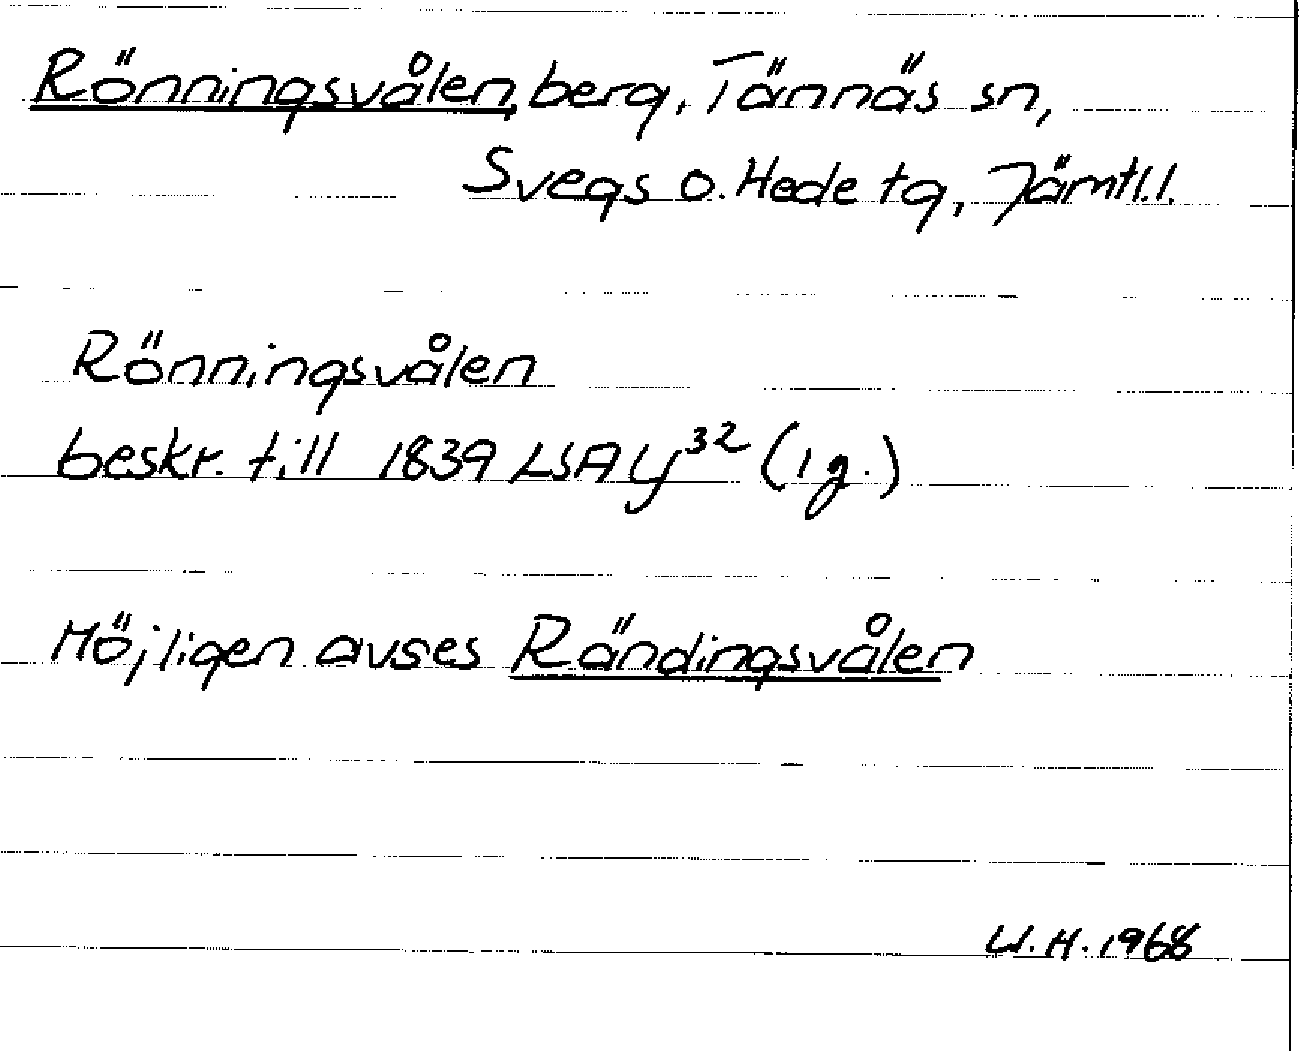 Rönningsvålen, berg, Tännäs sn,
Svegs o. Hede tg, Jämtl.l.
Rönningsvålen
beskr. till 1839 LSA Y³² (1 g.)
Möjligen avses Rändingsvålen
U.H. 1968